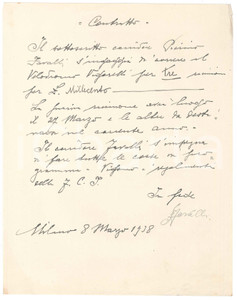 "Contratto"
Il sottoscritto corridore Pierino
Favalli s'impegna di correre al
Velodromo Vigorelli per tre riunioni
per L. Millecento
La prima riunione avrà luogo
il 20 Marzo e le altre da desti-
narsi nel corrente anno.
Il corridore Favalli s'impegna
a fare tutte le corse in pro-
gramma. Vigono i regolamenti
della
In fede
Favalli
Milano 8 Marzo 1938